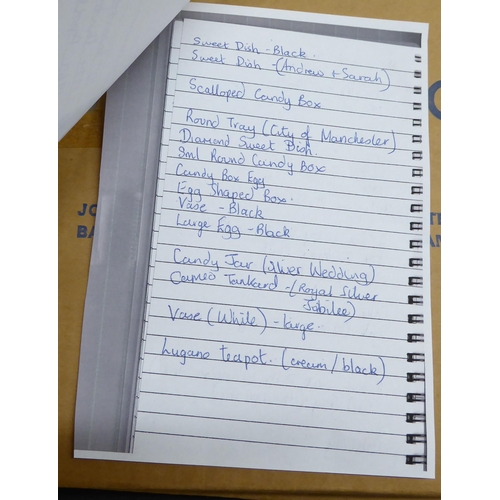 Sweet Dish - Black.
Sweet Dish - (Andrew + Sarah)
Scalloped Candy Box
Round Tray (City of Manchester)
Diamond Sweet Dish
9ml Round Candy Box
Candy Box Egg
Egg Shaped Box.
Vase - Black
Large Egg - Black
Candy Jar (Silver Wedding)
Cameo Tankard - (Royal Silver
Jubilee)
Vase (White) - large.
Lugano teapot. (cream/black)
JO
BA